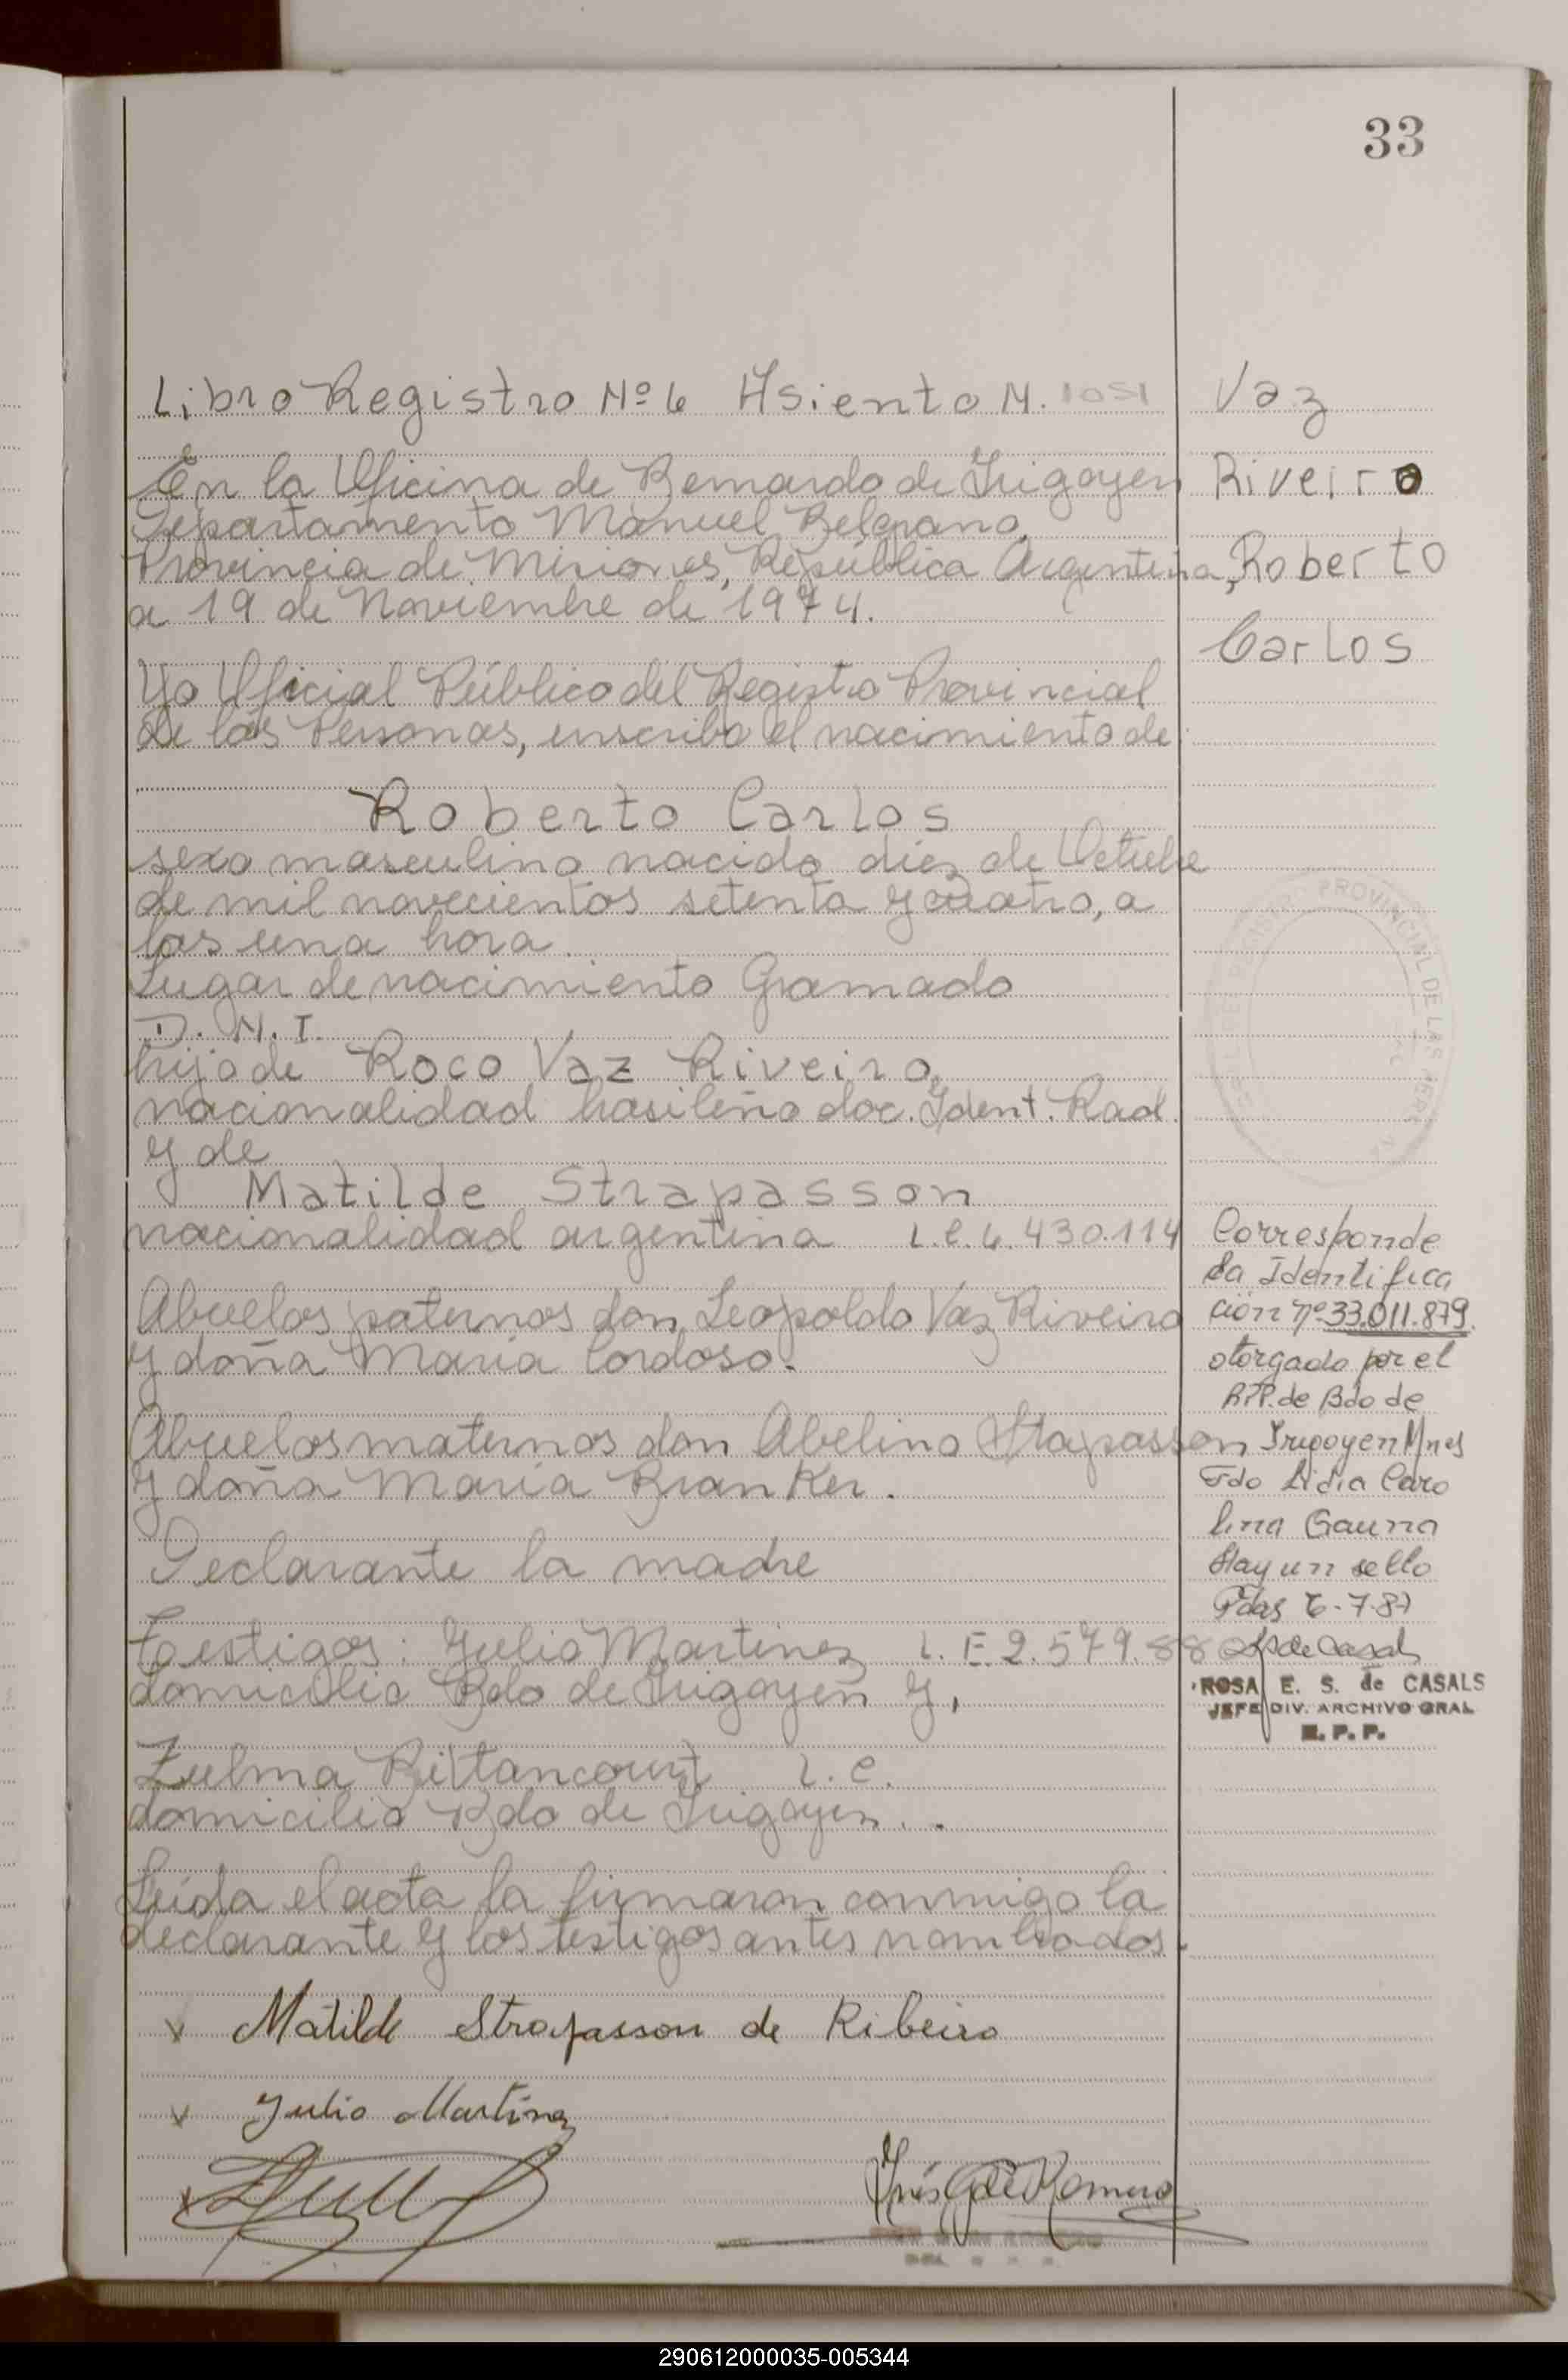 33
Libro Registro Nº 6 Asiento N. 1051
Vaz
Riveiro
Roberto
Carlos
En la Oficina de Bernardo de Irigoyen
Departamento Manuel Belgrano,
Provincia de Misiones, República Argentina,
a 19 de Noviembre de 1974.
Yo Oficial Público del Registro Provincial
de las Personas, inscribo el nacimiento de
Roberto Carlos
sexo masculino nacido diez de Octubre
de mil novecientos setenta y cuatro, a
las una hora
Lugar de nacimiento Gramado
D. N. I.
hijo de Roco Vaz Riveiro,
nacionalidad brasileño doc. Ident. Rad.
y de
Matilde Strapasson
nacionalidad argentina L.C. 6.430.114
Abuelos paternos don Leopoldo Vaz Riveiro
y doña María Cordoso.
Abuelos maternos don Abelino Stapasson
y doña María Branker.
Declarante la madre
Testigos: Julio Martinez L.E. 2.579.88
domicilio Bdo de Irigoyen y,
Zulma Bittancourt L.C.
domicilio Bdo de Irigoyen..
Leída el acta la firmaron conmigo la
declarante y los testigos antes nombrados.
Matilde Strapasson de Ribeiro
Julio Martínez
Inés G de Romero
PROVINCIAL DE LAS
Corresponde
la Identifica
ción nº 33.011.879.
otorgado por el
R.P.P. de Bdo de
Irigoyen Mnes
Fdo Lidia Caro
lina Gauna
Hay un sello
Pdas 6-7-87
de Casals
ROSA E. S. de CASALS
JEFE DIV. ARCHIVO GRAL
R. P. P.
290612000035-005344